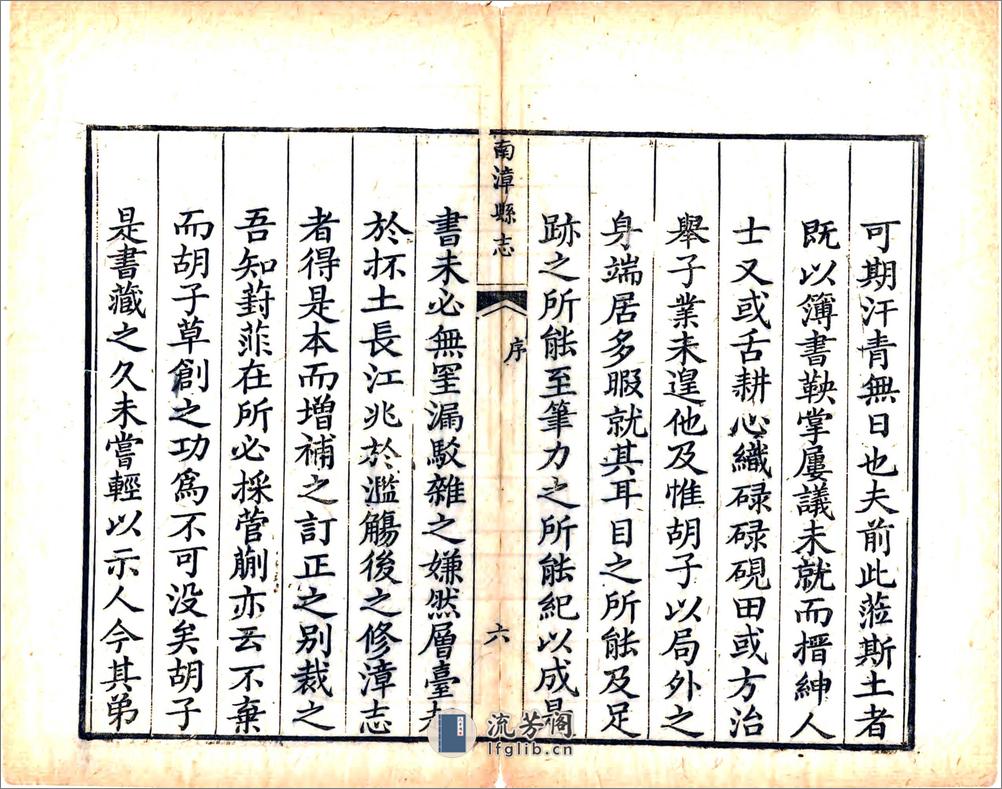 可期汗青無日也夫前此蒞斯土者
既以簿書鞅掌屢議未就而搢紳人
士又或舌耕心織碌碌硯田或方治
舉子業未遑他及惟胡子以局外之
身端居多暇就其耳目之所能及足
跡之所能至筆力之所能紀以成是
南漳縣志
序
六
書未必無罣漏駁雜之嫌然層臺
於抔土長江兆於濫觴後之修漳志
者得是本而增補之訂正之別裁之
吾知葑菲在所必採菅蒯亦云不棄
而胡子草創之功為不可没矣胡子
是書藏之久未嘗輕以示人今其弟
流芳阁
lfglib.cn